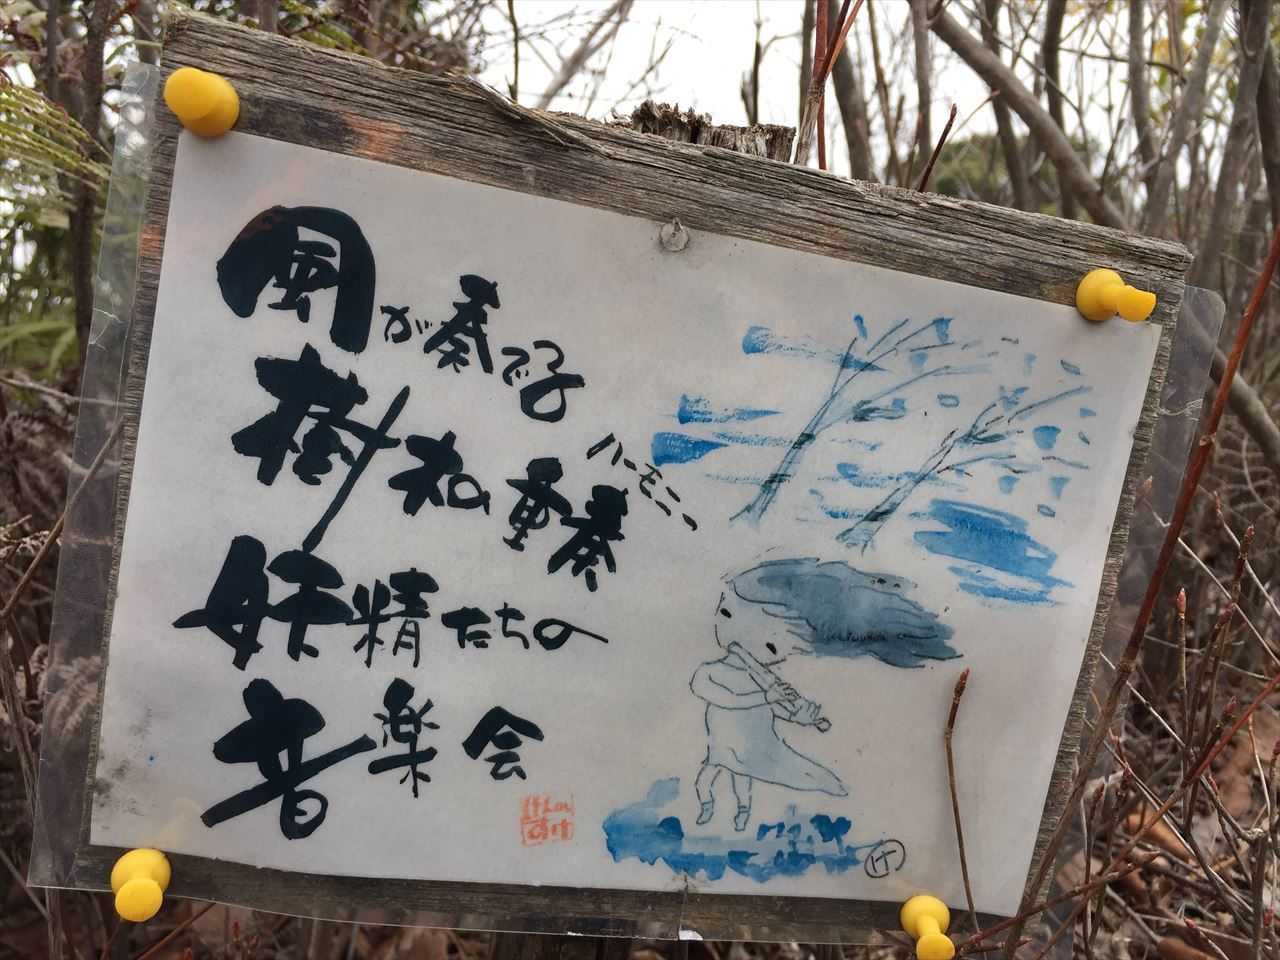 風が奏でる
樹木の重奏
ハーモニー
妖精たちの
音楽会
け